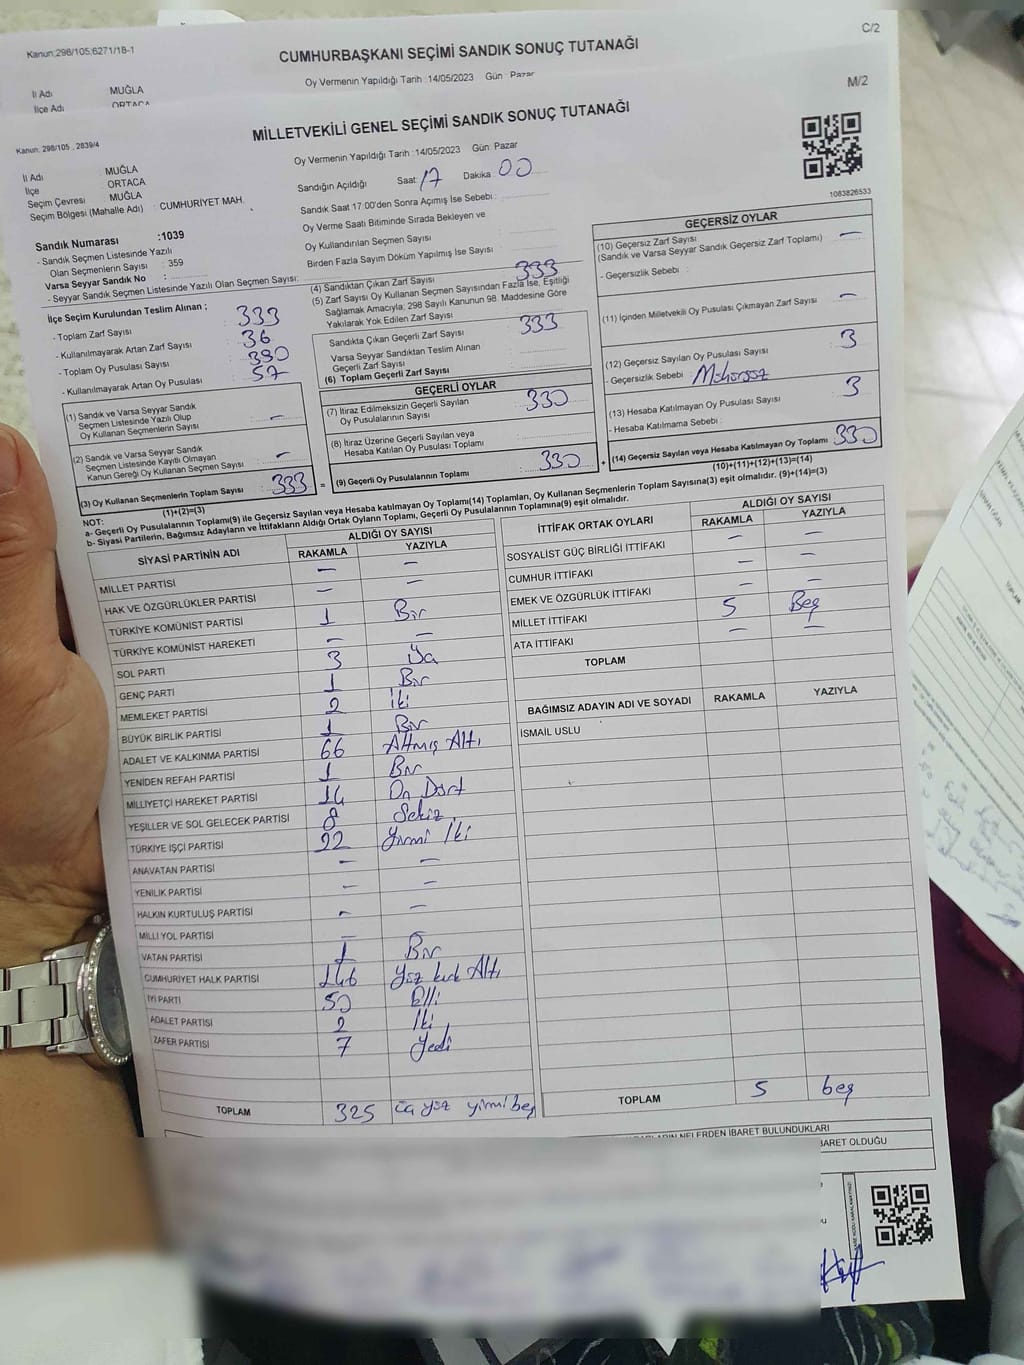 Kanun:298/105;6271/18-1
C/2
CUMHURBAŞKANI SEÇİMİ SANDIK SONUÇ TUTANAĞI
Oy Vermenin Yapıldığı Tarih :14/05/2023 Gün : Pazar
İl Adı : MUĞLA
İlçe Adı : ORTACA
M/2
MİLLETVEKİLİ GENEL SEÇİMİ SANDIK SONUÇ TUTANAĞI
Kanun: 298/105 , 2839/4
Oy Vermenin Yapıldığı Tarih :14/05/2023 Gün: Pazar
İl Adı : MUĞLA
İlçe : ORTACA
Seçim Çevresi : MUĞLA
Seçim Bölgesi (Mahalle Adı) : CUMHURİYET MAH.
Sandık Numarası :1039
- Sandık Seçmen Listesinde Yazılı
Olan Seçmenlerin Sayısı : 359
Varsa Seyyar Sandık No :
- Seyyar Sandık Seçmen Listesinde Yazılı Olan Seçmen Sayısı:
Sandığın Açıldığı Saat: 17 Dakika 00
Sandık Saat 17:00'den Sonra Açımış İse Sebebi :
Oy Verme Saati Bitiminde Sırada Bekleyen ve
Oy Kullandırılan Seçmen Sayısı :
Birden Fazla Sayım Döküm Yapılmış İse Sayısı :
1083826533
İlçe Seçim Kurulundan Teslim Alınan ;
- Toplam Zarf Sayısı : 333
- Kullanılmayarak Artan Zarf Sayısı : 36
- Toplam Oy Pusulası Sayısı : 390
- Kullanılmayarak Artan Oy Pusulası : 57
(1) Sandık ve Varsa Seyyar Sandık
Seçmen Listesinde Yazılı Olup
Oy Kullanan Seçmenlerin Sayısı : -
(2) Sandık ve Varsa Seyyar Sandık
Seçmen Listesinde Kayıtlı Olmayan
Kanun Gereği Oy Kullanan Seçmen Sayısı : -
(3) Oy Kullanan Seçmenlerin Toplam Sayısı : 333
(1)+(2)=(3)
(4) Sandıktan Çıkan Zarf Sayısı : 333
(5) Zarf Sayısı Oy Kullanan Seçmen Sayısından Fazla İse, Eşitliği
Sağlamak Amacıyla; 298 Sayılı Kanunun 98. Maddesine Göre
Yakılarak Yok Edilen Zarf Sayısı :
Sandıkta Çıkan Geçerli Zarf Sayısı : 333
Varsa Seyyar Sandıktan Teslim Alınan
Geçerli Zarf Sayısı :
(6) Toplam Geçerli Zarf Sayısı :
GEÇERLİ OYLAR
(7) İtiraz Edilmeksizin Geçerli Sayılan
Oy Pusulalarının Sayısı : 330
(8) İtiraz Üzerine Geçerli Sayılan veya
Hesaba Katılan Oy Pusulası Toplamı :
= (9) Geçerli Oy Pusulalarının Toplamı : 330 +
GEÇERSİZ OYLAR
(10) Geçersiz Zarf Sayısı : -
(Sandık ve Varsa Seyyar Sandık Geçersiz Zarf Toplamı)
- Geçersizlik Sebebi :
(11) İçinden Milletvekili Oy Pusulası Çıkmayan Zarf Sayısı : -
(12) Geçersiz Sayılan Oy Pusulası Sayısı : 3
- Geçersizlik Sebebi :
(13) Hesaba Katılmayan Oy Pusulası Sayısı : 3
- Hesaba Katılmama Sebebi :
(14) Geçersiz Sayılan veya Hesaba Katılmayan Oy Toplamı : 330
(10)+(11)+(12)+(13)=(14)
NOT:
a- Geçerli Oy Pusulalarının Toplamı(9) ile Geçersiz Sayılan veya Hesaba Katılmayan Oy Toplamı(14) Toplamları, Oy Kullanan Seçmenlerin Toplam Sayısına(3) eşit olmalıdır. (9)+(14)=(3)
b- Siyasi Partilerin, Bağımsız Adayların ve İttifakların Aldığı Ortak Oyların Toplamı, Geçerli Oy Pusulalarının Toplamına(9) eşit olmalıdır.
SİYASİ PARTİNİN ADI ALDIĞI OY SAYISI
RAKAMLA YAZIYLA
MİLLET PARTİSİ - -
HAK VE ÖZGÜRLÜKLER PARTİSİ - -
TÜRKİYE KOMÜNİST PARTİSİ 1 Bir
TÜRKİYE KOMÜNİST HAREKETİ - -
SOL PARTİ 3 Üç
GENÇ PARTİ 1 Bir
MEMLEKET PARTİSİ 2 İki
BÜYÜK BİRLİK PARTİSİ 1 Bir
ADALET VE KALKINMA PARTİSİ 66 Altmış Altı
YENİDEN REFAH PARTİSİ 1 Bir
MİLLİYETÇİ HAREKET PARTİSİ 14 On Dört
YEŞİLLER VE SOL GELECEK PARTİSİ 8 Sekiz
TÜRKİYE İŞÇİ PARTİSİ 22 Yirmi İki
ANAVATAN PARTİSİ - -
YENİLİK PARTİSİ - -
HALKIN KURTULUŞ PARTİSİ - -
MİLLİ YOL PARTİSİ -
VATAN PARTİSİ 1 Bir
CUMHURİYET HALK PARTİSİ 146 Yüz kırk Altı
İYİ PARTİ 50 Elli
ADALET PARTİSİ 2 İki
ZAFER PARTİSİ 7 Yedi
TOPLAM 325 üç yüz yirmi beş
İTTİFAK ORTAK OYLARI ALDIĞI OY SAYISI
RAKAMLA YAZIYLA
SOSYALİST GÜÇ BİRLİĞİ İTTİFAKI - -
CUMHUR İTTİFAKI - -
EMEK VE ÖZGÜRLÜK İTTİFAKI - -
MİLLET İTTİFAKI 5 Beş
ATA İTTİFAKI - -
TOPLAM
BAĞIMSIZ ADAYIN ADI VE SOYADI RAKAMLA YAZIYLA
İSMAİL USLU
TOPLAM 5 beş
NELERDEN İBARET BULUNDUKLARI
BARET OLDUĞU